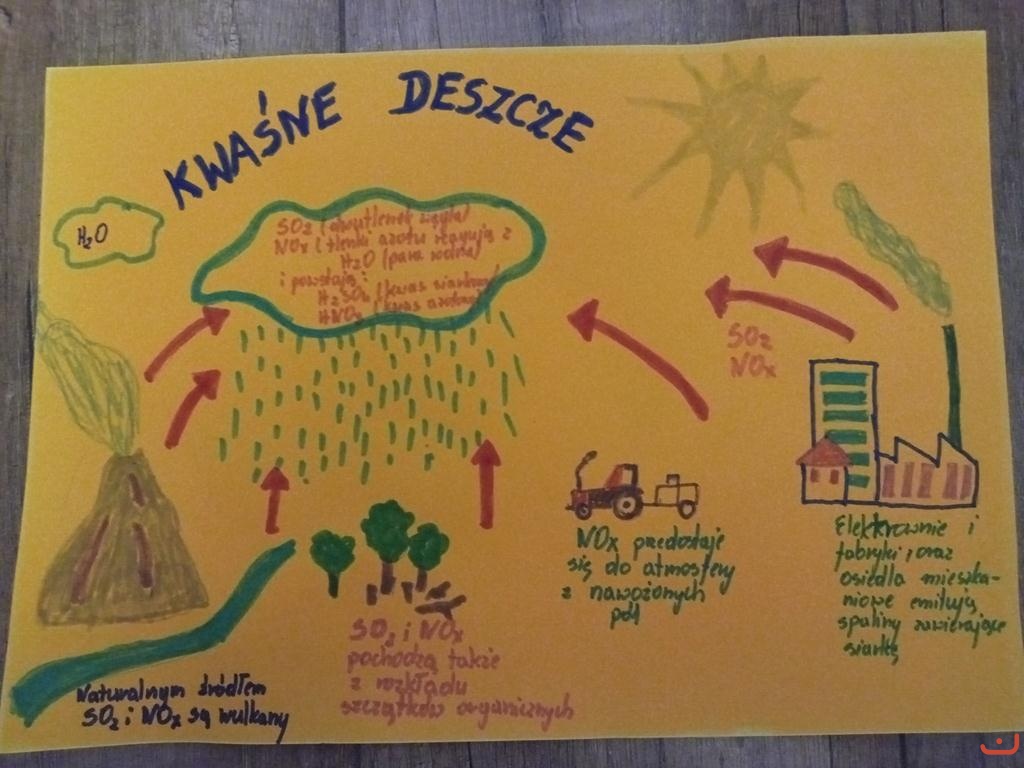 KWAŚNE DESZCZE
H2O
SO2 (dwutlenek węgla)
NOx (tlenki azotu reagują z
H2O (para wodna)
i powstają:
H2SO4 (kwas siarkowy)
HNO3 (kwas azotowy)
SO2
NOx
NOx przedostaje
się do atmosfery
z nawożonych
pól
Elektrownie i
fabryki, oraz
osiedla mieszka-
niowe emitują
spaliny zawierające
siarkę
SO2 i NOx
pochodzą także
z rozkładu
szczątków organicznych
Naturalnym źródłem
SO2 i NOx są wulkany